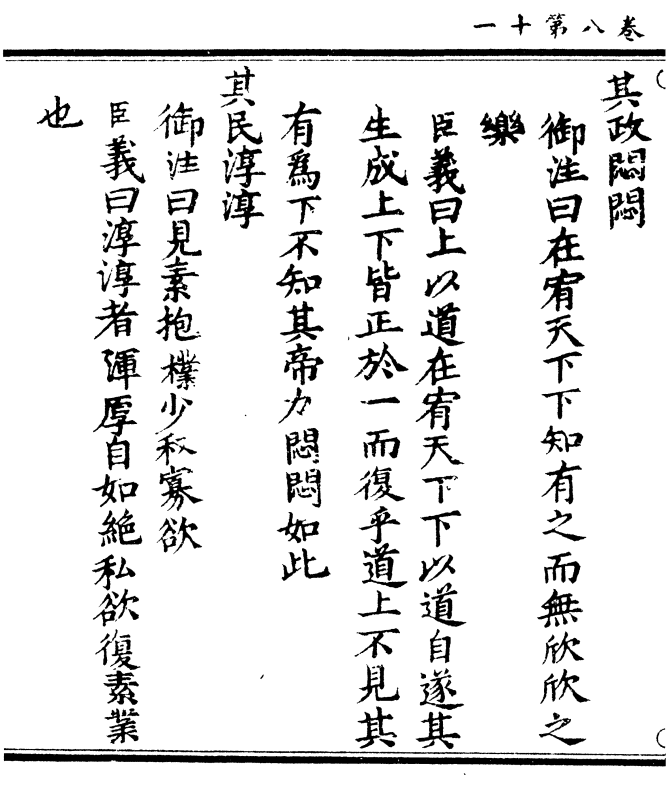 卷八第十一
其政悶悶
御注曰在宥天下下知有之而無欣欣之
樂
臣義曰上以道在宥天下下以道自遂其
生成上下皆正於一而復乎道上不見其
有爲下不知其帝力悶悶如此
其民淳淳
御注曰見素抱樸少私寡欲
臣義曰淳淳者渾厚自如絶私欲復素業
也